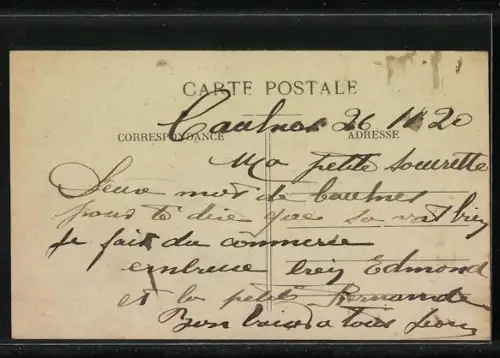 CARTE POSTALE
Caulnes 26 11 20
CORRESPONDANCE
ADRESSE
Ma petite sourette
Deux mot de Caulnes
pour te dire que sa vat bien
Je fait du commerse
embrase bien Edmond
et la petite Fernande
Bon baisé a tous